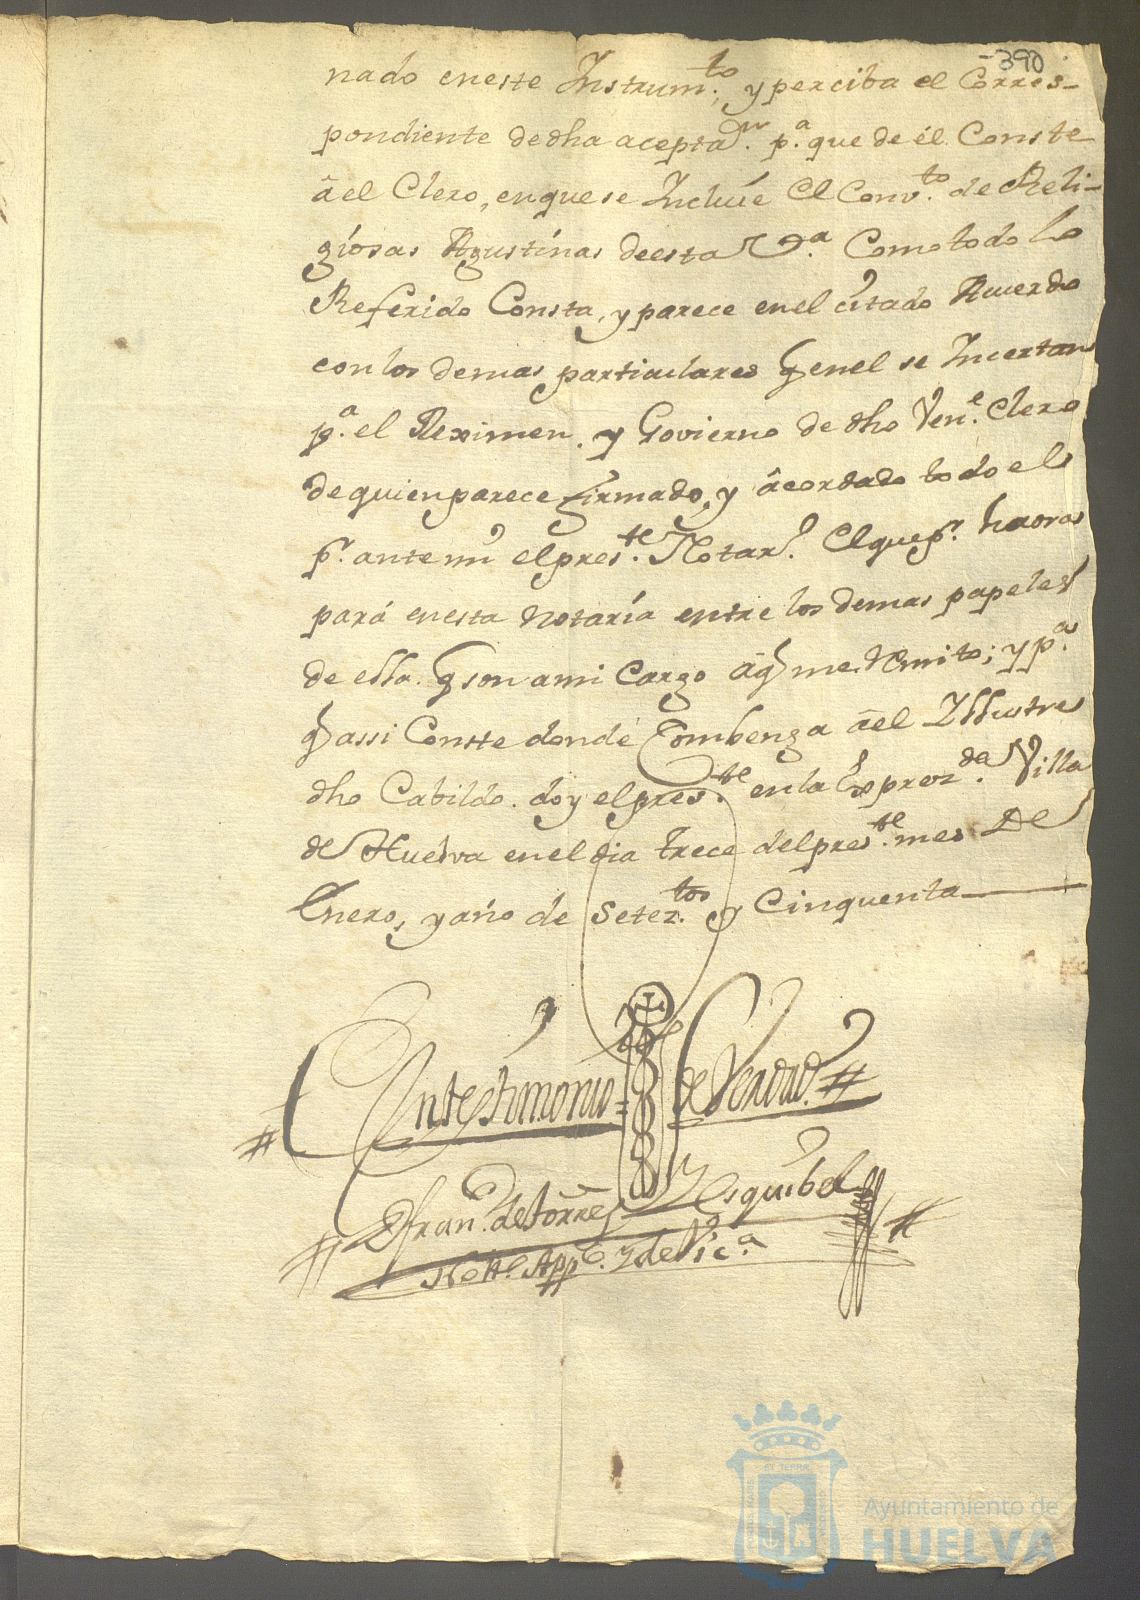 -390
nado eneste Instrum.to y perciba el Corres-
pondiente de dha acepta.on p.a que de él Conste
âel Clero, enque se Incluíe el Conv.to de Reli-
giosas Agustínas deesta V.a Como todo lo
Referido Consta, y parece enel citado Acuerdo
con los demas particulares q enel se Incertan
p.a el Reximen y Govierno de dho Ven.e Clero
de quien parece firmado, y âcordado todo el
p.r ante mi el pres.te Notar.o El que p.r haora
pará enesta Notaría entre los demas papeles
de ella q son a mi Cargo âq me Remito; y p.a
q assi Conste donde Combenga âel Illustre
dho Cabildo doy el pres.te en la Exprez.da Villa
de Huelva en el dia trece del pres.te mes De
Enero, y año de Setez.tos y Cinquenta
En testimonio de Verdad
D fran.co de torres Y esquibel
Nott.o App.co y de Vic.a
Ayuntamiento de
HUELVA